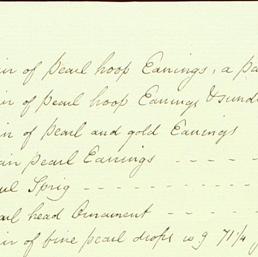 ir of pearl hoop Earrings, a pa
ir of pearl hoop Earrings & sund
ir of pearl and gold Earrings
air pearl Earrings - - - -
Sprig - - - - - - - -
arl head Ornament - - - -
ir of fine pearl drops wg 71¼